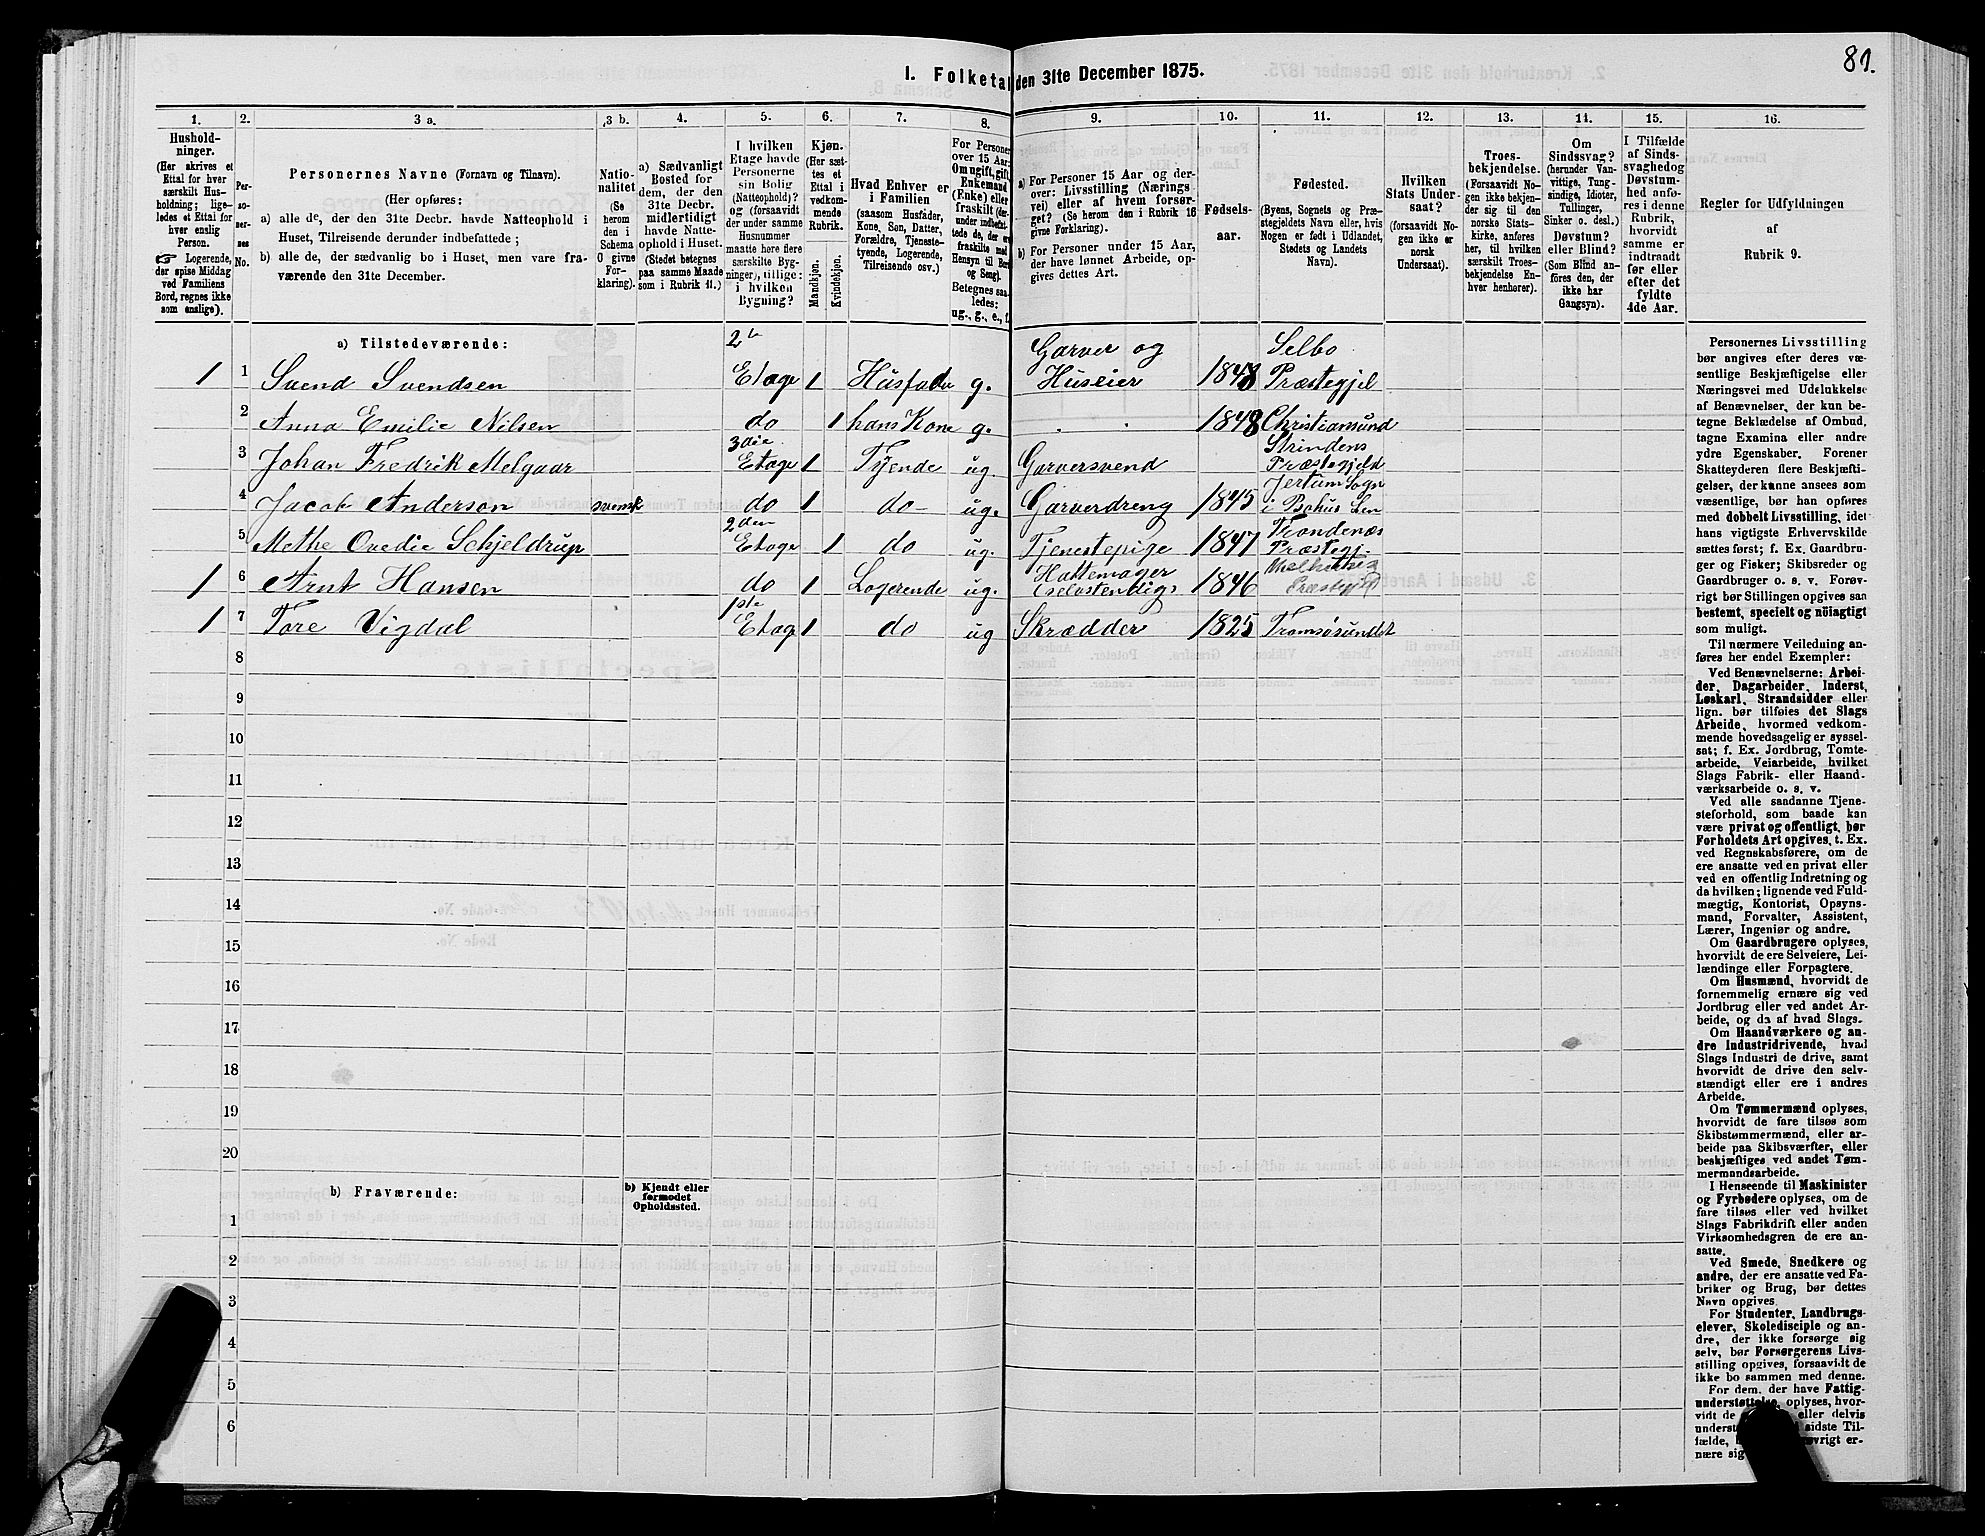 81.
I. Folketal den 31te December 1875.
1. 2. 3 a. 3 b. 4. 5. 6. 7. 8. 9. 10. 11. 12. 13. 14. 15. 16.
Husholdninger.
(Her skrives et
Ettal for hver
særskilt Husholdning; ligeledes et Ettal for
enslig
Person.
☞ Logerende,
der spise Middag
ved Familiens
Bord, regnes ikke
som enslige).
Personernes No.
Personernes Navne (Fornavn og Tilnavn).
(Her opføres:
a) alle de, der den 31te Decbr. havde Natteophold i
Huset, Tilreisende derunder indbefattede;
b) alle de, der sædvanlig bo i Huset, men vare fraværende den 31te December.
Nationalitet
(Se
herom
den i
Schema
O givne
Forklaring).
a) Sædvanligt
Bosted for
dem, der den
31te Decbr.
midlertidigt
havde Natteophold i Huset.
(Stedet betegnes
paa samme Maade
som i Rubrik 11.)
I hvilken
Etage havde
Personerne
sin Bolig
(Natteophold)?
og (forsaavidt
der under samme
Husnummer
maatte høre flere
særskilte Bygninger), tillige:
i hvilken
Bygning?
Kjøn.
(Her sættes et
Ettal i
vedkommende
Rubrik.
Mandkjøn.
Kvindekjøn.
Hvad Enhver er
i Familien
(saasom Husfader,
Kone, Søn, Datter,
Forældre, Tjenestetyende, Logerende,
Tilreisende osv.)
For Personer
over 15 Aar:
Om ugift, gift,
Enkemand
(Enke) eller
fraskilt
Hensyn til Bord
og Seng).
Betegnes saaledes:
ug., g., e., f.
a) For Personer 15 Aar og derover: Livsstilling (Næringsvei) eller af hvem forsørget? (Se herom den i Rubrik 16
givne Forklaring).
b) For Personer under 15 Aar,
der have lønnet Arbeide, opgives dettes Art.
Fødselsaar.
Fødested.
(Byens, Sognets og Præstegjeldets Navn eller, hvis
Nogen er født i Udlandet,
Stedets og Landets
Navn).
Hvilken
Stats Undersaat?
(forsaavidt Nogen ikke er
norsk
Undersaat).
Troesbekjendelse.
(Forsaavidt Nogen ikke bekjender sig til den
norske Statskirke, anføres
her, til hvilken
særskilt Troesbekjendelse Enhver henhører).
Om
Sindssvag?
(herunder Vanvittige, Tungsindige, Idioter,
Tullinger,
Sinker o. desl.)
Døvstum?
eller Blind?
(Som Blind anføres den, der
ikke har
Gangsyn).
I Tilfælde
af Sindssvaghed og
Døvstumhed anføres i denne
Rubrik,
hvorvidt
samme er
indtraadt
før eller
efter det
fyldte
4de Aar.
Regler for Udfyldningen
af
Rubrik 9.
a) Tilstedeværende:
1 1 Svend Svendsen Etage 1 Husfader g. Garver og Huseier Selbo Præstegjel
2 Anna Emilie Nilsen do 1 hans Kone g. 1848 Christiansund
3 Johan Fredrik Melgaar 3die Etage 1 Tjende ug. Garversvend Strindens Præstegjeld
4 Jacob Anderson svensk do 1 do ug. Garverdreng 1845 Jertum Sogn i Bohus Len
5 Methe Ovedie Schjeldrup 2den Etage 1 do ug. Tjenestepige 1847 Trondenæs Præstegj.
1 6 Arnt Hansen do 1 Logerende ug. Hattemager (selvstendig) 1846
1 7 Tore Vigdal 1ste Etage 1 do ug Skrædder 1825 Tromsøsundet
8
9
10
11
12
13
14
15
16
17
18
19
20
b) Fraværende:
b) Kjendt eller
formodet
Opholdssted.
1
2
3
4
5
6
Personernes Livsstilling
bør angives efter deres væsentlige Beskjæftigelse eller
Næringsvei med Udelukkelse
af Benævnelser, der kun betegne Beklædelse af Ombud,
tagne Examina eller andre
ydre Egenskaber. Forener
Skatteyderen flere Beskjæftigelser, der kunne ansees som
væsentlige, bør han opføres
med dobbelt Livsstilling, idet
hans vigtigste Erhvervskilde
sættes først; f. Ex. Gaardbruger og Fisker; Skibsreder og
Gaardbruger o. s. v. Forøvrigt bør Stillingen opgives saa
bestemt, specielt og nöiagtigt
som muligt.
Til nærmere Veiledning anføres her endel Exempler:
Ved Benævnelserne: Arbeider, Dagarbeider, Inderst,
Løskarl, Strandsidder eller
lign. bør tilføies det Slags
Arbeide, hvormed vedkommende hovedsagelig er sysselsat; f. Ex. Jordbrug, Tomtearbeide, Veiarbeide, hvilket
Slags Fabrik- eller Haandværksarbeide o. s. v.
Ved alle saadanne Tjenesteforhold, som baade kan
være privat og offentligt, bør
Forholdets Art opgives, t. Ex.
ved Regnskabsførere, om de
ere ansatte ved en privat eller
ved en offentlig Indretning og
da hvilken; lignende ved Fuldmægtig, Kontorist, Opsynsmand, Forvalter, Assistent,
Lærer, Ingeniør og andre.
Om Gaardbrugere oplyses,
hvorvidt de ere Selveiere, Leilændinge eller Forpagtere.
Om Husmænd, hvorvidt de
fornemmelig ernære sig ved
Jordbrug eller ved andet Arbeide, og da af hvad Slags.
Om Haandværkere og andre Industridrivende, hvad
Slags Industri de drive, samt
hvorvidt de drive den selvstændigt eller ere i andres
Arbeide.
Om Tømmermænd oplyses,
hvorvidt de fare tilsøs som
Skibstømmermænd, eller arbeide paa Skibsværfter, eller
beskjæftiges ved andet Tømmermandsarbeide.
I Henseende til Maskinister
og Fyrbødere oplyses, om de
fare tilsøs eller ved hvilket
Slags Fabrikdrift eller anden
Virksomhedsgren de ere ansatte.
Ved Smede, Snedkere og
andre, der ere ansatte ved Fabriker og Brug, bør dettes
Navn opgives.
For Studenter, Landbrugselever, Skoledisciple og andre, der ikke forsørge sig
selv, bør Forsørgerens Livsstilling opgives, forsaavidt de
ikke bo sammen med denne.
For dem, der have Fattigunderstøttelse, oplyses, hvorvidt de eller delvis
sidste Tilfælde,